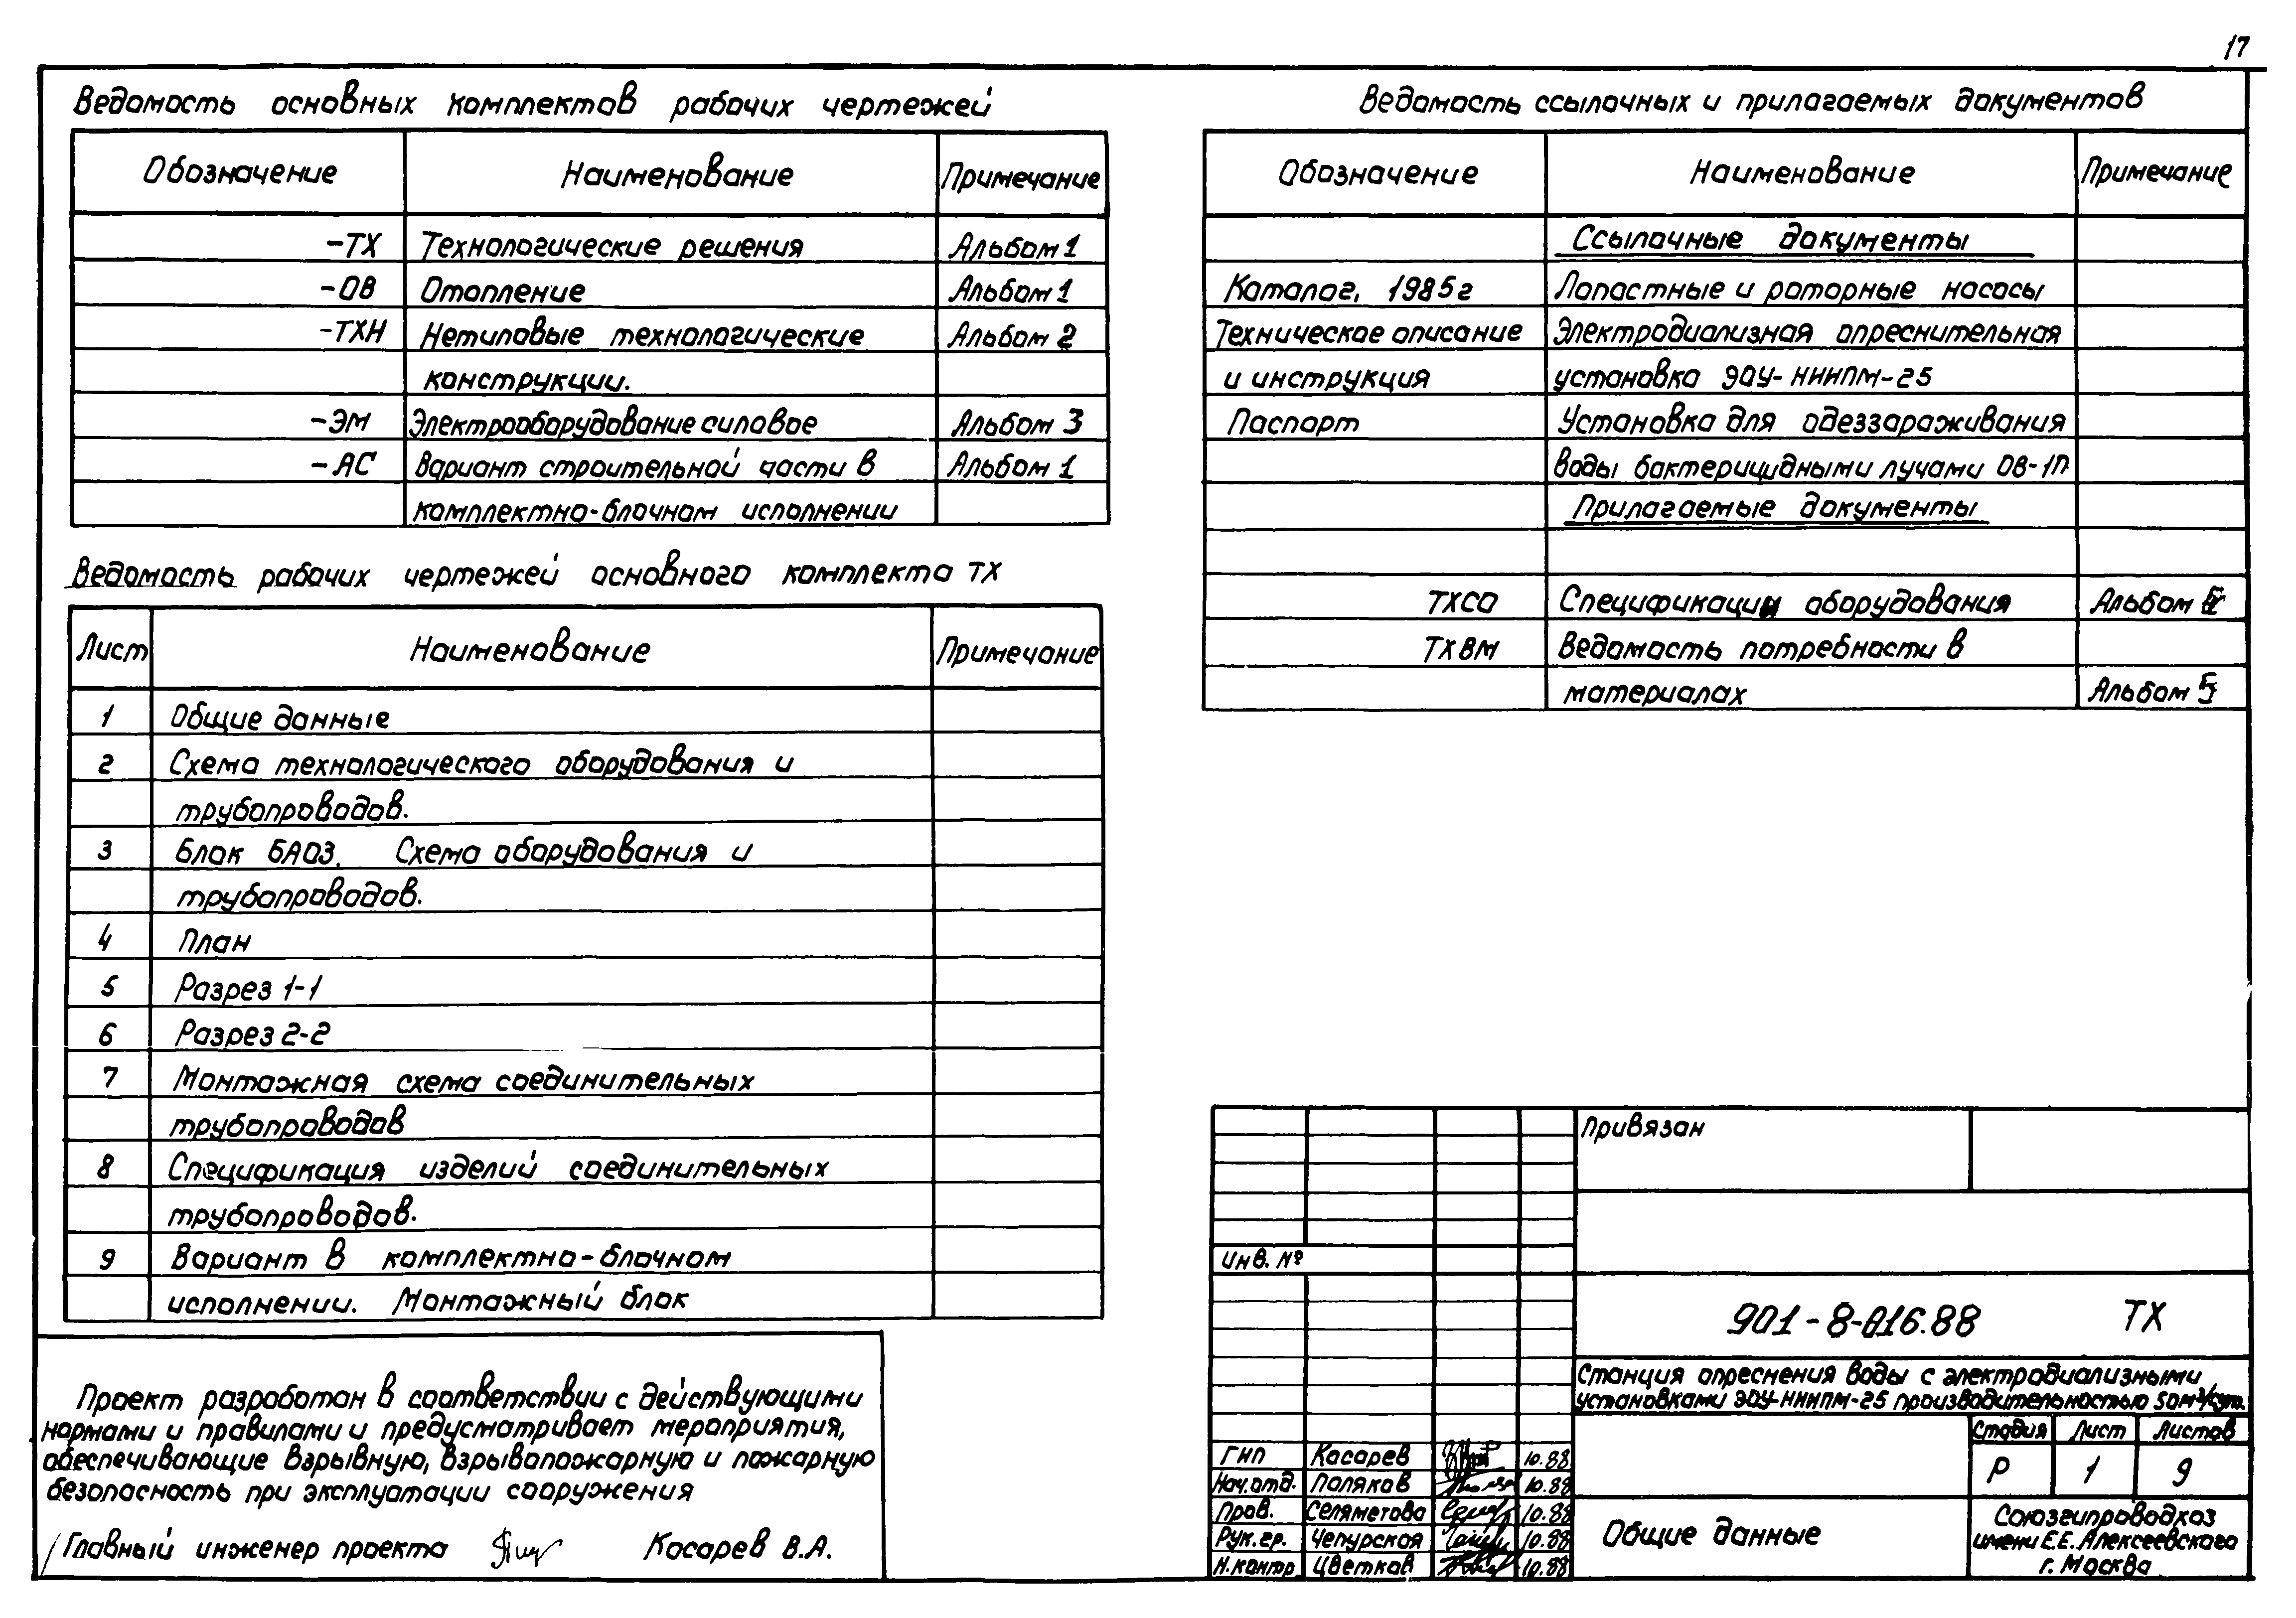 17
Ведомость основных комплектов рабочих чертежей
Обозначение Наименование Примечание
-ТХ Технологические решения Альбом 1
-ОВ Отопление Альбом 1
-ТХН Нетиповые технологические Альбом 2
конструкции.
-ЭМ Электрооборудование силовое Альбом 3
-АС Вариант строительной части в Альбом 1
комплектно-блочном исполнении
Ведомость рабочих чертежей основного комплекта ТХ
Лист Наименование Примечание
1 Общие данные
2 Схема технологического оборудования и
трубопроводов.
3 Блок БАОЗ. Схема оборудования и
трубопроводов.
4 План
5 Разрез 1-1
6 Разрез 2-2
7 Монтажная схема соединительных
трубопроводов
8 Спецификация изделий соединительных
трубопроводов.
9 Вариант в комплектно-блочном
исполнении. Монтажный блок
Проект разработан в соответствии с действующими
нормами и правилами и предусматривает мероприятия,
обеспечивающие взрывную, взрывопожарную и пожарную
безопасность при эксплуатации сооружения
Главный инженер проекта Косарев В.А.
Ведомость ссылочных и прилагаемых документов
Обозначение Наименование Примечание
Ссылочные документы
Каталог, 1985г Лопастные и роторные насосы
Техническое описание Электродиализная опреснительная
и инструкция установка ЭОУ-НИИПМ-25
Паспорт Установка для одеззараживания
воды бактерицидными лучами ОВ-1П
Прилагаемые документы
ТХСО Спецификации оборудования Альбом
ТХВМ Ведомость потребности в
материалах Альбом 5
Привязан
Инв. №
901-8-016.88 ТХ
Станция опреснения воды с электродиализными
установками ЭОУ-НИИПМ-25 производительностью 50м³/сут.
Стадия Лист Листов
Р 1 9
ГИП Косарев 10.88
Нач.отд. Поляков 10.88
Пров. Селяметова 10.88
Рук.гр. Чепурская 10.88
Н.контр Цветков 10.88
Общие данные
Союзгипроводхоз
имени Е.Е.Алексеевского
г. Москва